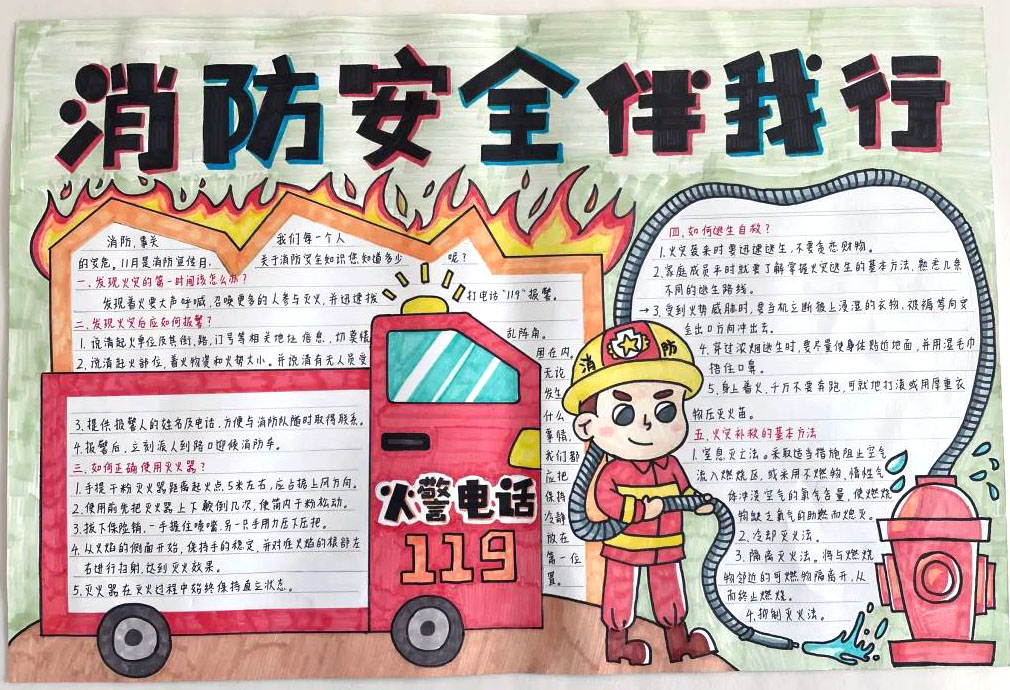 消防安全伴我行
消防,事关 我们每一个人
的安危。11月是消防宣传月, 关于消防安全知识您知道多少 呢?
一.发现火灾的第一时间该怎么办?
发现着火要大声呼喊,召唤更多的人参与灭火,并迅速拨 打电话"119"报警。
二.发现火灾后应如何报警?
1.说清起火单位及其街、路、门号等相关地址信息,切莫慌 乱阵角。
2.说清起火部位、着火物资和火势大小。并说清有无人员受 困在内。
3.提供报警人的姓名及电话,方便与消防队随时取得联系。
4.报警后,立刻派人到路口迎候消防车。
三.如何正确使用灭火器?
1.手提干粉灭火器距离起火点5米左右,应占据上风方向。
2.使用前先把灭火器上下颠倒几次,使筒内干粉松动。
3.拔下保险销,一手握住喷嘴,另一只手用力压下压把。
4.从火焰的侧面开始,保持手的稳定,并对准火焰的根部左
右进行扫射,达到灭火效果。
5.灭火器在灭火过程中始终保持直立状态。
无论
发生
什么
事情,
我们都
应把
保持
冷静
放在
第一位
置。
火警电话
119
消防
四.如何逃生自救?
1.火灾袭来时要迅速逃生,不要贪恋财物。
2.家庭成员平时就要了解掌握火灾逃生的基本方法,熟悉几条
不同的逃生路线。
→3.受到火势威胁时,要当机立断披上浸湿的衣物、被褥等向安
全出口方向冲出去。
4.穿过浓烟逃生时,要尽量使身体贴近地面,并用湿毛巾
捂住口鼻。
5.身上着火,千万不要奔跑,可就地打滚或用厚重衣
物压灭火苗。
五.火灾补救的基本方法
1.窒息灭亡法。采取适当措施阻止空气
流入燃烧区,或采用不燃物、惰性气
体冲淡空气的氧气含量,使燃烧
物缺乏氧气的助燃而熄灭。
2.冷却灭火法。
3.隔离灭火法。将与燃烧
物邻近的可燃物隔离开,从
而终止燃烧。
4.抑制灭火法。